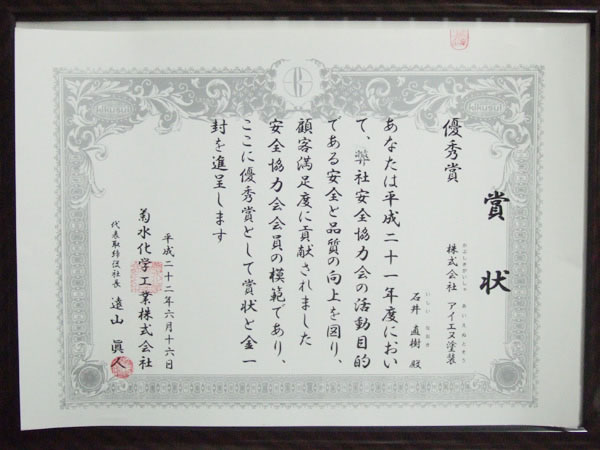 賞状
優秀賞
かぶしきがいしゃ あいえぬとそう
株式会社 アイエヌ塗装
いしい なおき
石井 直樹 殿
あなたは平成二十一年度におい
て、弊社安全協力会の活動目的
である安全と品質の向上を図り、
顧客満足度に貢献されました
安全協力会会員の模範であり、
ここに優秀賞として賞状と金一
封を進呈します
平成二十二年六月十六日
菊水化学工業株式会社
代表取締役社長 遠山 眞人